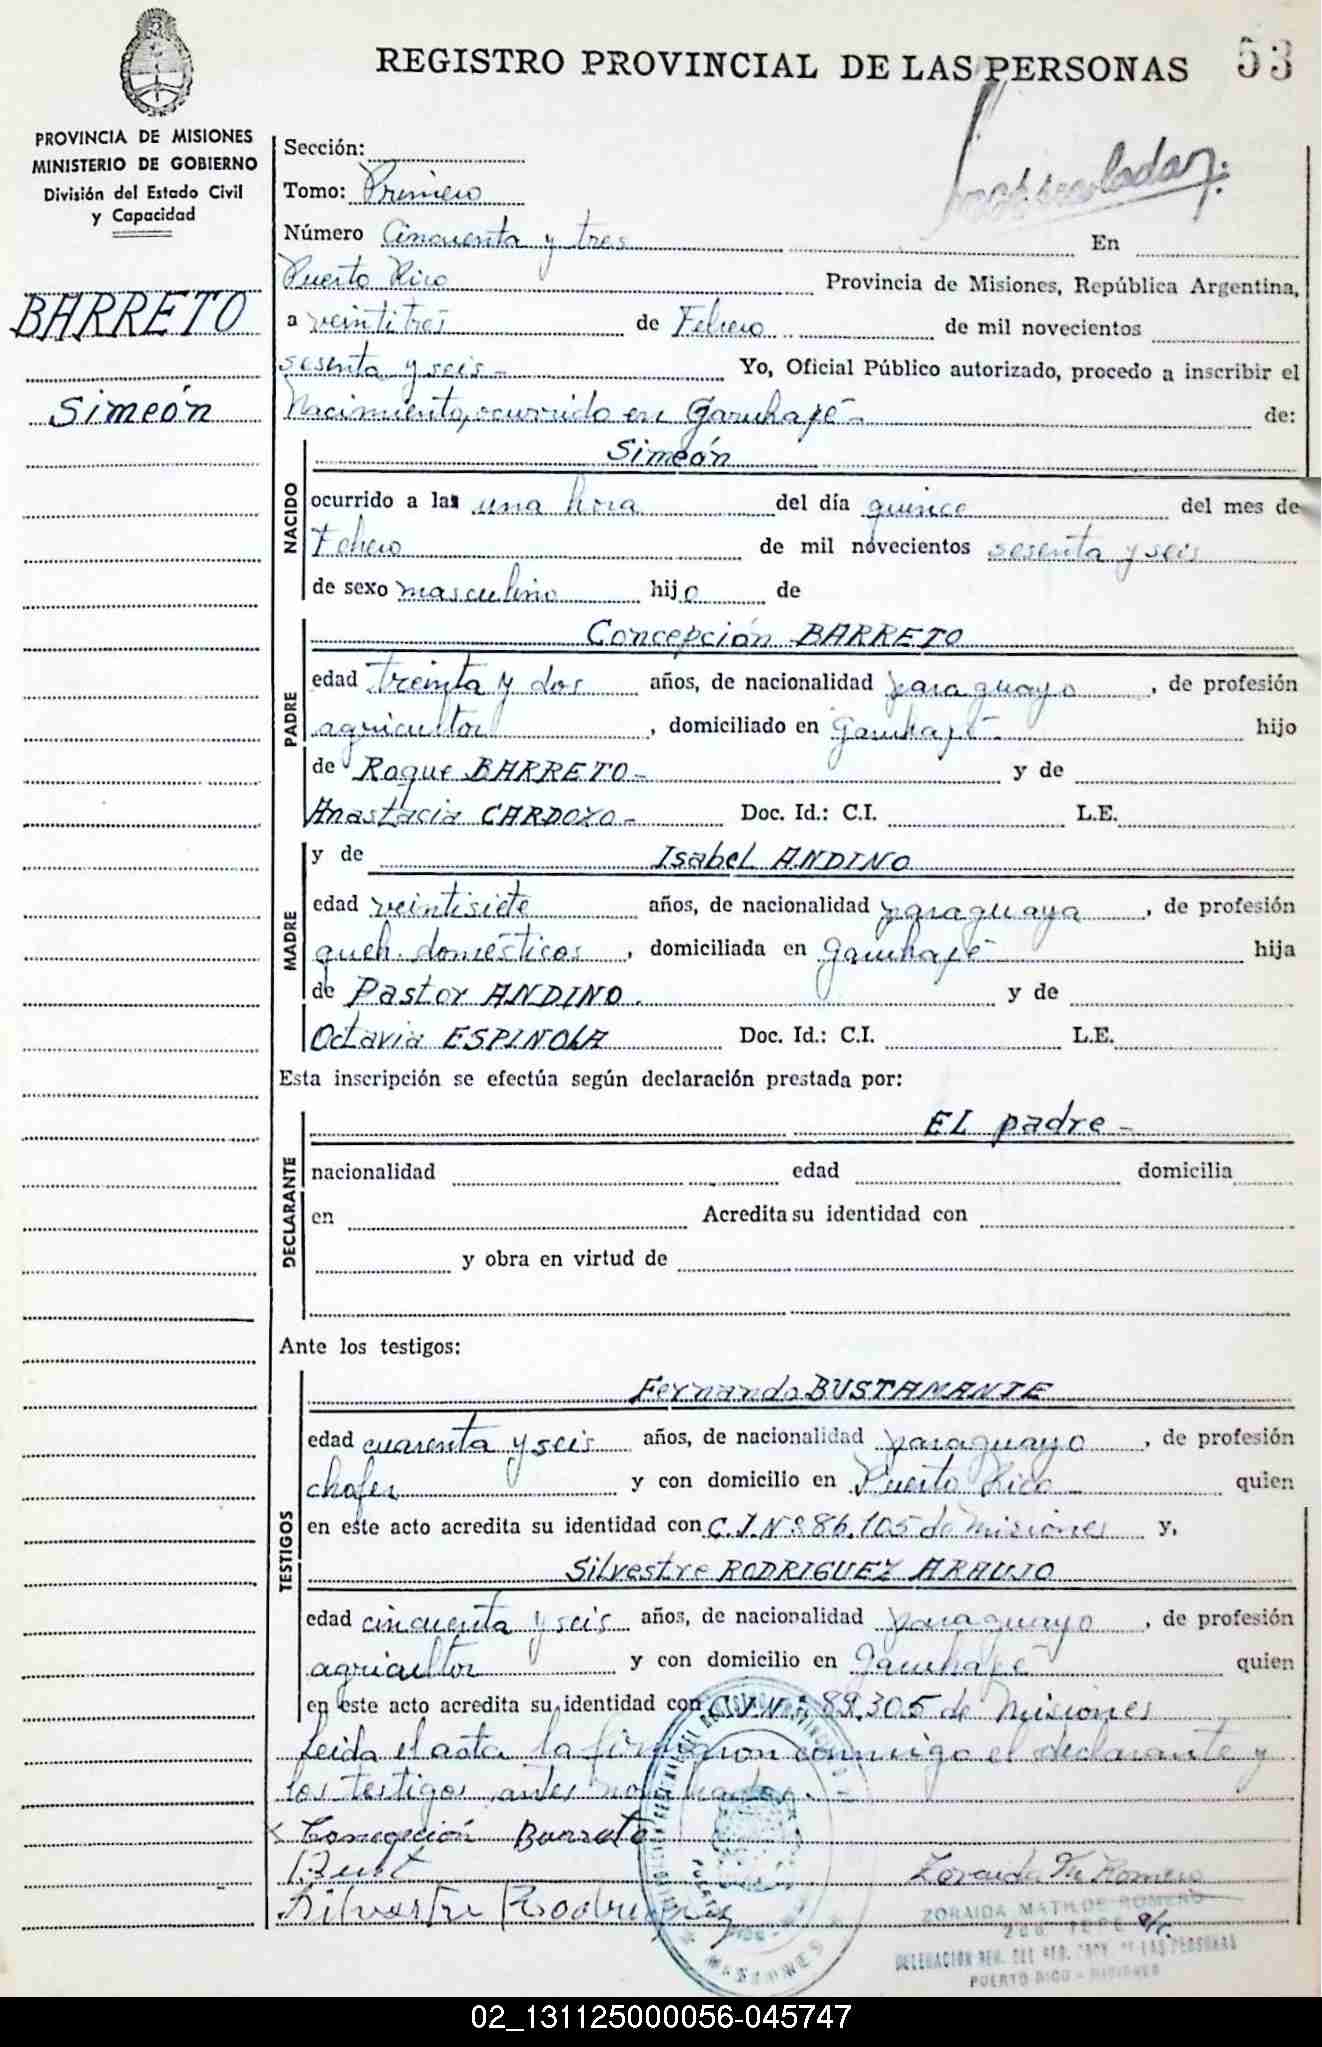 REGISTRO PROVINCIAL DE LAS PERSONAS 53
PROVINCIA DE MISIONES
MINISTERIO DE GOBIERNO
División del Estado Civil
y Capacidad
BARRETO
Simeón
Sección:
Tomo: Primero
Número Cincuenta y tres En
Puerto Rico Provincia de Misiones, República Argentina,
a veintitres de Febrero de mil novecientos
sesenta y seis - Yo, Oficial Público autorizado, procedo a inscribir el
Nacimiento, ocurrido en Garuhapé - de:
NACIDO
Simeón
ocurrido a las una hora del día quince del mes de
Febrero de mil novecientos sesenta y seis
de sexo masculino hijo de
PADRE
Concepción BARRETO
edad treinta y dos años, de nacionalidad paraguayo, de profesión
agricultor, domiciliado en Garuhapé - hijo
de Roque BARRETO - y de
Anastacia CARDOZO - Doc. Id.: C.I. L.E.
MADRE
y de Isabel ANDINO
edad veintisiete años, de nacionalidad paraguaya, de profesión
queh. domésticos, domiciliada en Garuhapé - hija
de Pastor ANDINO. y de
Octavia ESPINOLA Doc. Id.: C.I. L.E.
Esta inscripción se efectúa según declaración prestada por:
DECLARANTE
EL padre -
nacionalidad edad domicilia
en Acredita su identidad con
y obra en virtud de
Ante los testigos:
TESTIGOS
Fernando BUSTAMANTE
edad cuarenta y seis años, de nacionalidad paraguayo, de profesión
chofer y con domicilio en Puerto Rico - quien
en este acto acredita su identidad con C.I. Nº 86.105 de Misiones y,
Silvestre RODRIGUEZ ARAUJO
edad cincuenta y seis años, de nacionalidad paraguayo, de profesión
agricultor y con domicilio en Garuhapé quien
en este acto acredita su identidad con C.I. Nº 89.305 de Misiones
Leida el acta la firmaron conmigo el declarante y
los testigos antes nombrados. -
Concepción Barreto
Bust
Silvestre Rodriguez
Zoraida M. Romero
ZORAIDA MATILDE ROMERO
PUERTO RICO - MISIONES
MISIONES
02_131125000056-045747